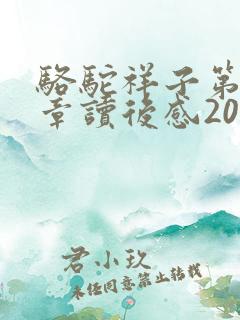 駱駝祥子第
章讀後感20
君小玖
未經同意禁止轉載